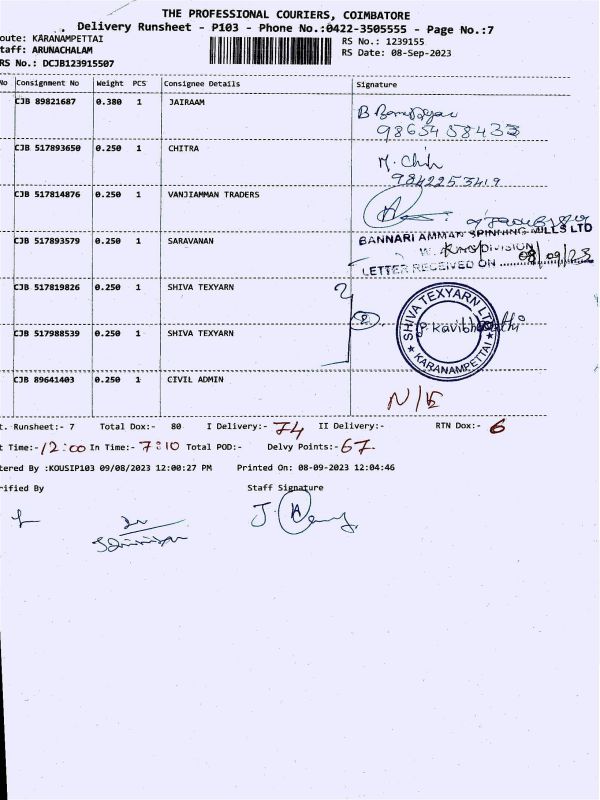 THE PROFESSIONAL COURIERS, COIMBATORE
Delivery Runsheet - P103 - Phone No.:0422-3505555 - Page No.:7
oute: KARANAMPETTAI RS No.: 1239155
taff: ARUNACHALAM RS Date: 08-Sep-2023
RS No.: DCJB123915507
No Consignment No Weight PCS Consignee Details Signature
CJB 89821687 0.380 1 JAIRAAM
9865458433
CJB 517893650 0.250 1 CHITRA
9842253419
CJB 517814876 0.250 1 VANJIAMMAN TRADERS
CJB 517893579 0.250 1 SARAVANAN
BANNARI AMMAN SPINNING MILLS LTD
DIVISION
LETTER RECEIVED ON 08/09/23
CJB 517819826 0.250 1 SHIVA TEXYARN
2
SHIVA TEXYARN LTD
KARANAMPETTAI
CJB 517988539 0.250 1 SHIVA TEXYARN
CJB 89641403 0.250 1 CIVIL ADMIN
t. Runsheet:- 7 Total Dox:- 80 I Delivery:- 74 II Delivery:- RTN Dox:- 6
t Time:- 12:00 In Time:- 7:10 Total POD:- Delvy Points:- 67
tered By :KOUSIP103 09/08/2023 12:00:27 PM Printed On: 08-09-2023 12:04:46
rified By Staff Signature